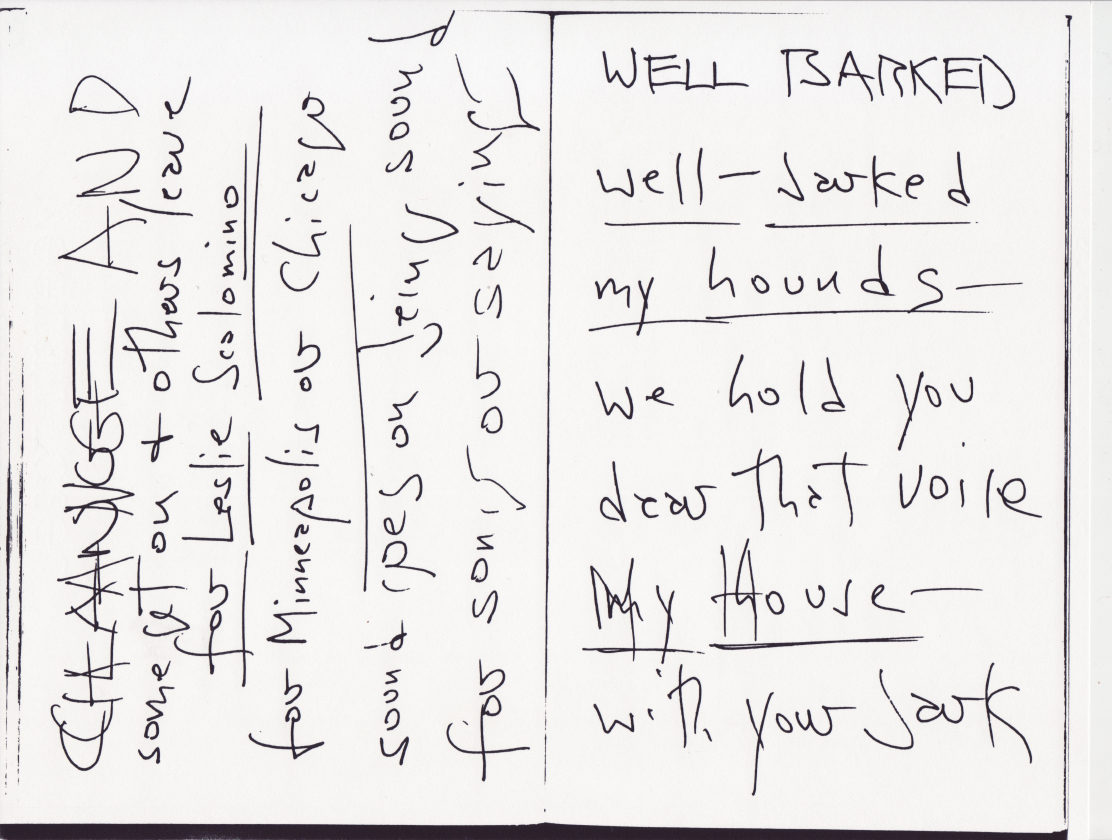 CHANGE AND
some get on + others leave
for Leslie Scalomino
for Minneapolis or Chicago
sound goes on being sound
for song or saying
WELL BARKED
well-barked
my hounds—
we hold you
dear that voice
My House—
with your bark